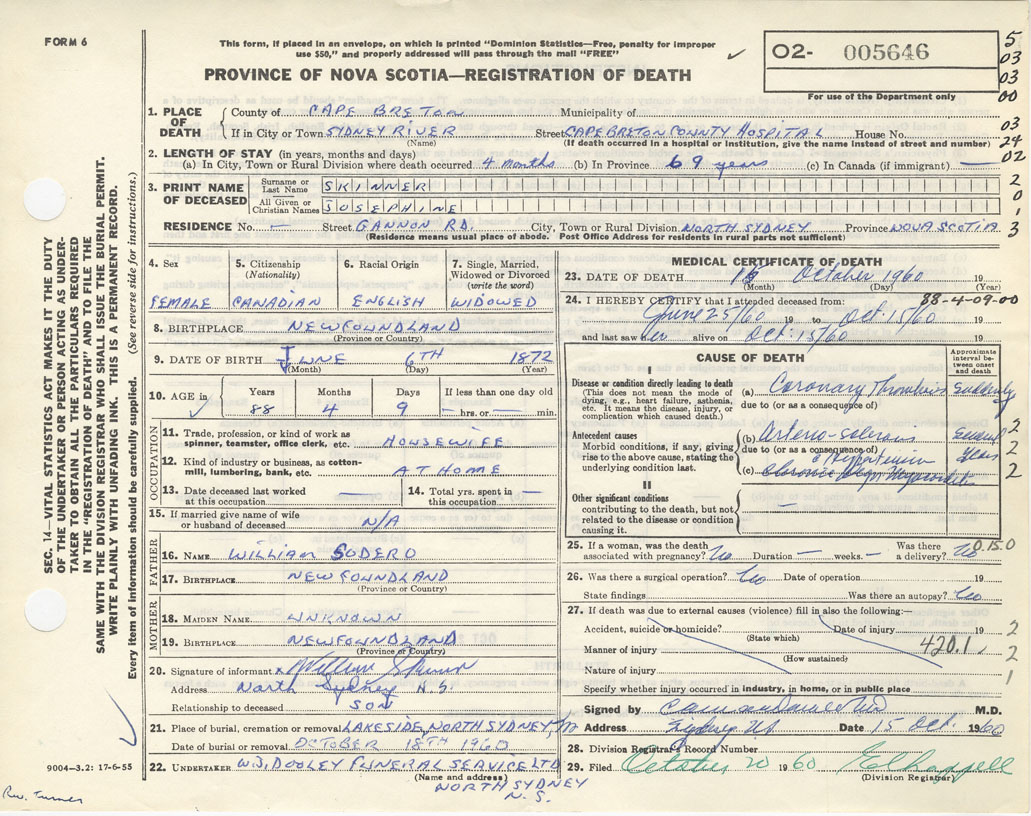 FORM 6
This form, if placed in an envelope, on which is printed "Dominion Statistics—Free, penalty for improper
use $50," and properly addressed will pass through the mail "FREE"
PROVINCE OF NOVA SCOTIA—REGISTRATION OF DEATH
02- 005646
For use of the Department only
5
03
03
00
03
24
02
2
0
1
3
1. PLACE OF DEATH
County of CAPE BRETON Municipality of
If in City or Town SYDNEY RIVER Street CAPE BRETON COUNTY HOSPITAL House No.
(Name) (If death occurred in a hospital or institution, give the name instead of street and number)
2. LENGTH OF STAY (in years, months and days)
(a) In City, Town or Rural Division where death occurred 4 months (b) In Province 69 years (c) In Canada (if immigrant) —
3. PRINT NAME OF DECEASED
Surname or Last Name SKINNER
All Given or Christian Names JOSEPHINE
RESIDENCE No. — Street GANNON RD. City, Town or Rural Division NORTH SYDNEY Province NOVA SCOTIA
(Residence means usual place of abode. Post Office Address for residents in rural parts not sufficient)
4. Sex
FEMALE
5. Citizenship
(Nationality)
CANADIAN
6. Racial Origin
ENGLISH
7. Single, Married,
Widowed or Divorced
(write the word)
WIDOWED
8. BIRTHPLACE NEWFOUNDLAND
(Province or Country)
9. DATE OF BIRTH JUNE 6TH 1872
(Month) (Day) (Year)
10. AGE in Years Months Days If less than one day old
88 4 9 — hrs. or — min.
OCCUPATION
11. Trade, profession, or kind of work as
spinner, teamster, office clerk, etc. HOUSEWIFE
12. Kind of industry or business, as cotton-
mill, lumbering, bank, etc. AT HOME
13. Date deceased last worked
at this occupation —
14. Total yrs. spent in
this occupation —
15. If married give name of wife
or husband of deceased N/A
FATHER
16. NAME WILLIAM SODERO
17. BIRTHPLACE NEWFOUNDLAND
(Province or Country)
MOTHER
18. MAIDEN NAME UNKNOWN
19. BIRTHPLACE NEWFOUNDLAND
(Province or Country)
20. Signature of informant x William Skinner
Address North Sydney N.S.
Relationship to deceased SON
21. Place of burial, cremation or removal LAKESIDE, NORTH SYDNEY,
Date of burial or removal OCTOBER 18TH 1960
22. UNDERTAKER W.J. DOOLEY FUNERAL SERVICE LTD
(Name and address)
NORTH SYDNEY
N.S.
MEDICAL CERTIFICATE OF DEATH
23. DATE OF DEATH 15 October 1960 19
(Month) (Day) (Year)
24. I HEREBY CERTIFY that I attended deceased from: 88-4-09-00
June 25/60 19 to Oct: 15/60
and last saw her alive on Oct: 15/60 19
CAUSE OF DEATH
Approximate
interval be-
tween onset
and death
I
Disease or condition directly leading to death
(This does not mean the mode of
dying, e.g., heart failure, asthenia,
etc. It means the disease, injury, or
complication which caused death.)
(a) Coronary Thrombosis Suddenly
due to (or as a consequence of)
Antecedent causes
Morbid conditions, if any, giving
rise to the above cause, stating the
underlying condition last.
(b) Arterio-sclerosis Several 2
due to (or as a consequence of)
& Hypertension Years 2
(c) Chronic Degen Myocarditis 2
II
Other significant conditions
contributing to the death, but not
related to the disease or condition
causing it.
—
25. If a woman, was the death
associated with pregnancy? No Duration — weeks. — Was there
a delivery? No 0.15.0
26. Was there a surgical operation? No Date of operation 19
State findings Was there an autopsy? No
27. If death was due to external causes (violence) fill in also the following:—
Accident, suicide or homicide? Date of injury 19 2
(State which)
Manner of injury 420.1 2
(How sustained)
Nature of injury 1
Specify whether injury occurred in industry, in home, or in public place
Signed by M.D.
Address Sydney NS Date 15 Oct. 1960
28. Division Registrar's Record Number
29. Filed October 20 1960
(Division Registrar)
SEC. 14—VITAL STATISTICS ACT MAKES IT THE DUTY
OF THE UNDERTAKER OR PERSON ACTING AS UNDER-
TAKER TO OBTAIN ALL THE PARTICULARS REQUIRED
IN THE "REGISTRATION OF DEATH" AND TO FILE THE
SAME WITH THE DIVISION REGISTRAR WHO SHALL ISSUE THE BURIAL PERMIT.
WRITE PLAINLY WITH UNFADING INK. THIS IS A PERMANENT RECORD.
Every item of information should be carefully supplied. (See reverse side for instructions.)
9004-3.2: 17-6-55
Rev. Turner